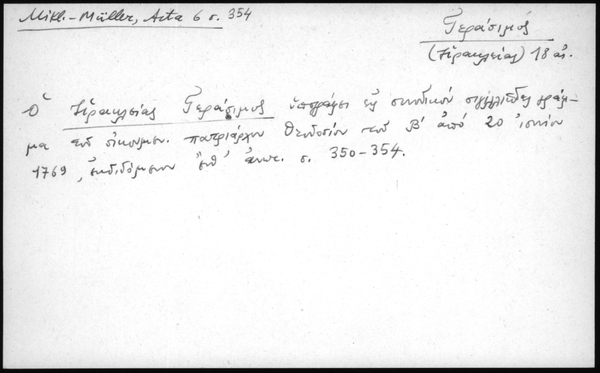 Mikl.-Müller, Acta 6 σ. 354
Γεράσιμος
(Ἡρακλείας) 18 αἰ.
Ὁ Ἡρακλείας Γεράσιμος ὑπογράφει εἰς συνοδικὸν σιγιλλιῶδες γράμ-
μα τοῦ οἰκουμεν. πατριάρχου Θεοδοσίου τοῦ Β' ἀπὸ 20 Ἰουνίου
1769, ἐκδιδόμενον ἔνθ' ἀνωτ. σ. 350-354.